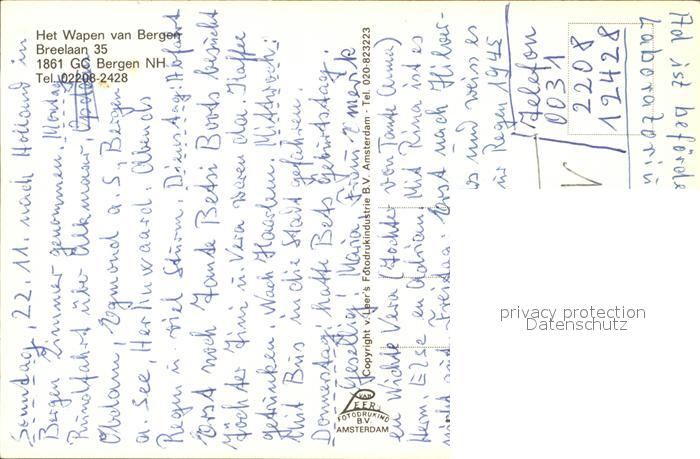 Het Wapen van Bergen
Breelaan 35
1861 GC Bergen NH
Tel. 02208-2428
Sonntag, 22.11. nach Holland in
Bergen Zimmer genommen. Montag
Rundfahrt über Alkmaar,
Obdam, Egmond a. S., Bergen
a. See, Abends
Regen u. viel Sturm. Dienstag:
Erst noch Tante Betsi Boots besucht
Tochter Tini u. Vera waren da. Kaffee
getrunken. Nach Haarlem. Mittwoch:
Mit Bus in die Stadt gefahren.
Donnerstag: hatte Bets Geburtstag.
Gesellig! Maria,
en Wichte Vera (Tochter von Tante Anna)
Herm. Else en Adriani. Mit Rina ist es
nicht mit Freitag. Erst nach
es und weiss es
in Regen 1945
Telefon
0031
2208
12428
Copyright v. Leer's Fotodrukindustrie B.V. Amsterdam - Tel. 020-823223
VAN
LEER'S
FOTODRUKIND
B.V.
AMSTERDAM
privacy protection
Datenschutz